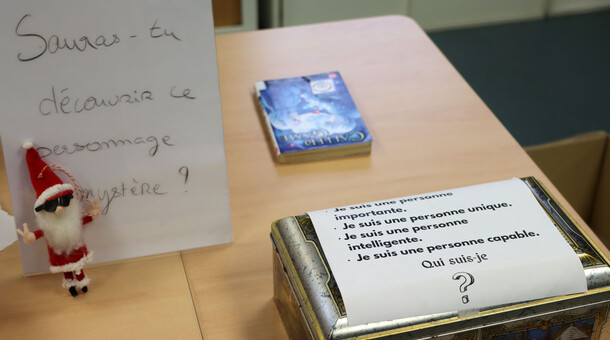 Sauras-tu
découvrir ce
personnage
mystère ?
• Je suis une personne
importante.
• Je suis une personne unique.
• Je suis une personne
intelligente.
• Je suis une personne capable.
Qui suis-je
?